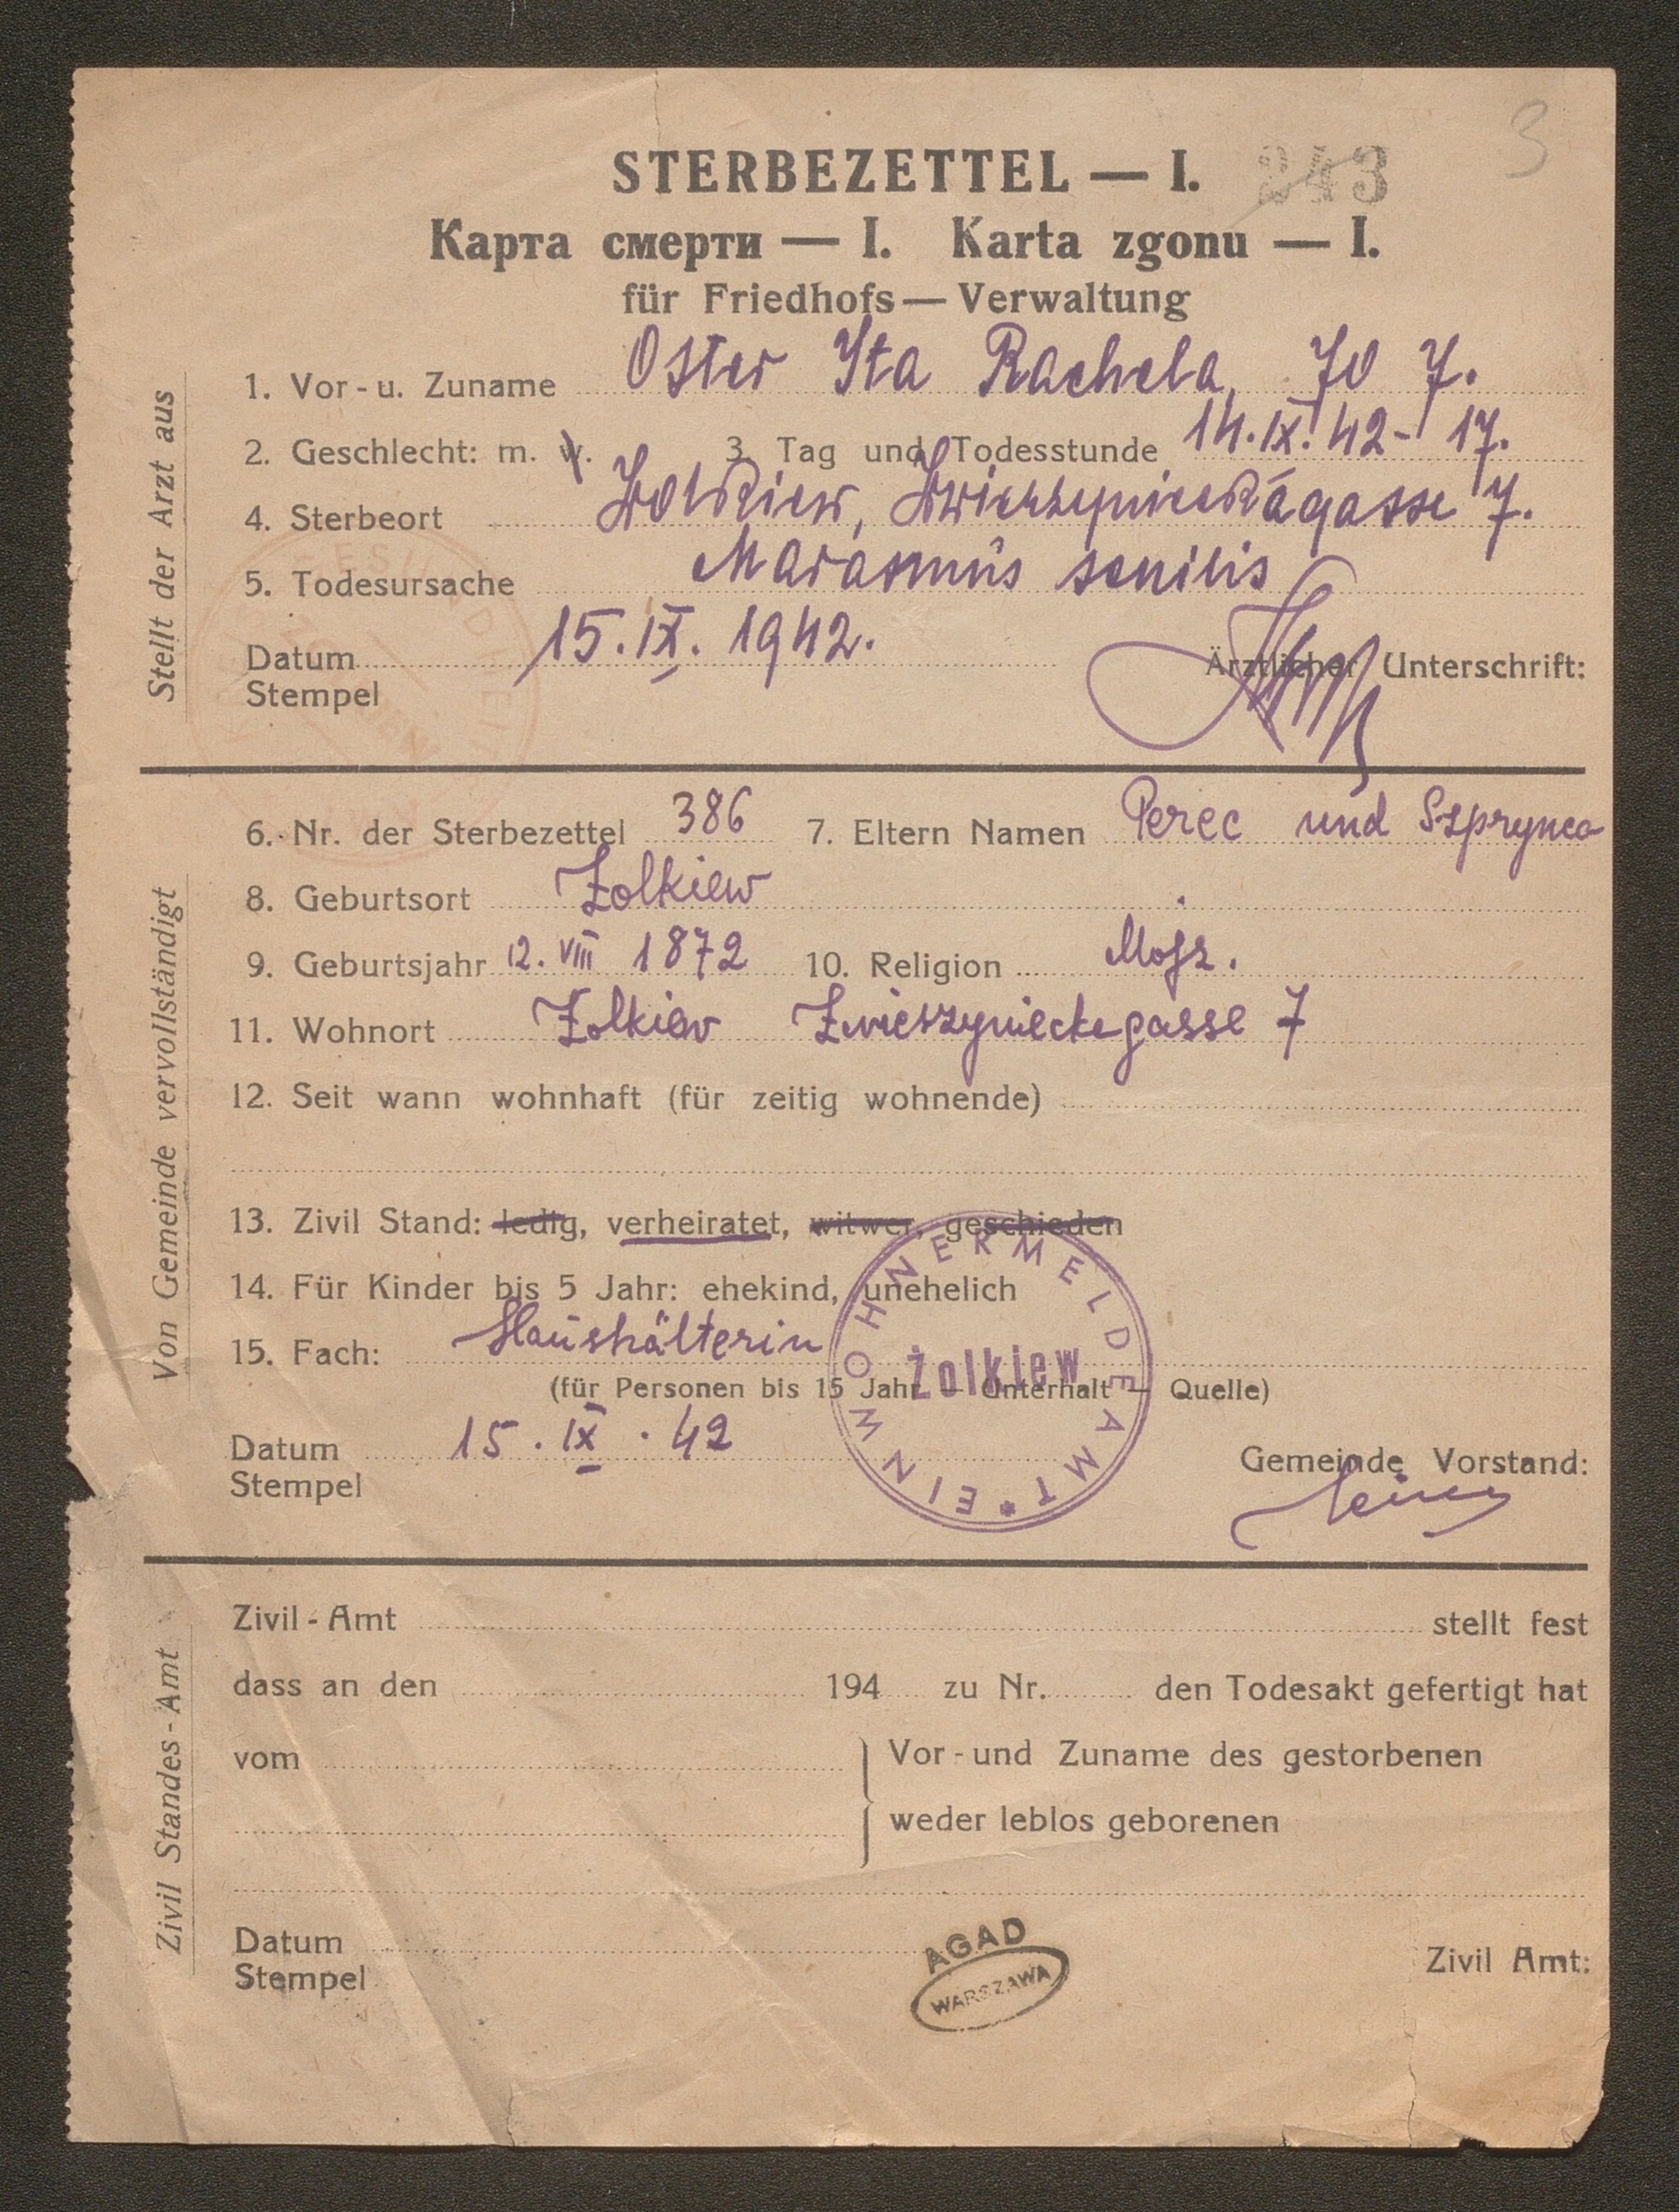 3
STERBEZETTEL — I. 243
Карта смерти — I. Karta zgonu — I.
für Friedhofs — Verwaltung
Stellt der Arzt aus
1. Vor - u. Zuname Oster Ita Rachela, 70 J.
2. Geschlecht: m. w. 3. Tag und Todesstunde 14.IX.42 - 17.
4. Sterbeort Zolkiew, Zwierzynieckagasse 7.
5. Todesursache Marasmus senilis
Datum 15.IX.1942. Ärztlicher Unterschrift:
Stempel
Von Gemeinde vervollständigt
6. Nr. der Sterbezettel 386 7. Eltern Namen Perec und Szprynca
8. Geburtsort Zolkiew
9. Geburtsjahr 12. VIII 1872 10. Religion Mojż.
11. Wohnort Zolkiew Zwieszynieckegasse 7
12. Seit wann wohnhaft (für zeitig wohnende)
13. Zivil Stand: ledig, verheiratet, witwer, geschieden
14. Für Kinder bis 5 Jahr: ehekind, unehelich
15. Fach: Haushälterin
(für Personen bis 15 Jahr — Unterhalt — Quelle)
EINWOHNERMELDEAMT *
Żolkiew
Datum 15.IX.42 Gemeinde Vorstand:
Stempel
Zivil Standes - Amt
Zivil - Amt stellt fest
dass an den 194 zu Nr. den Todesakt gefertigt hat
vom Vor - und Zuname des gestorbenen
weder leblos geborenen
Datum Zivil Amt:
Stempel
AGAD
WARSZAWA